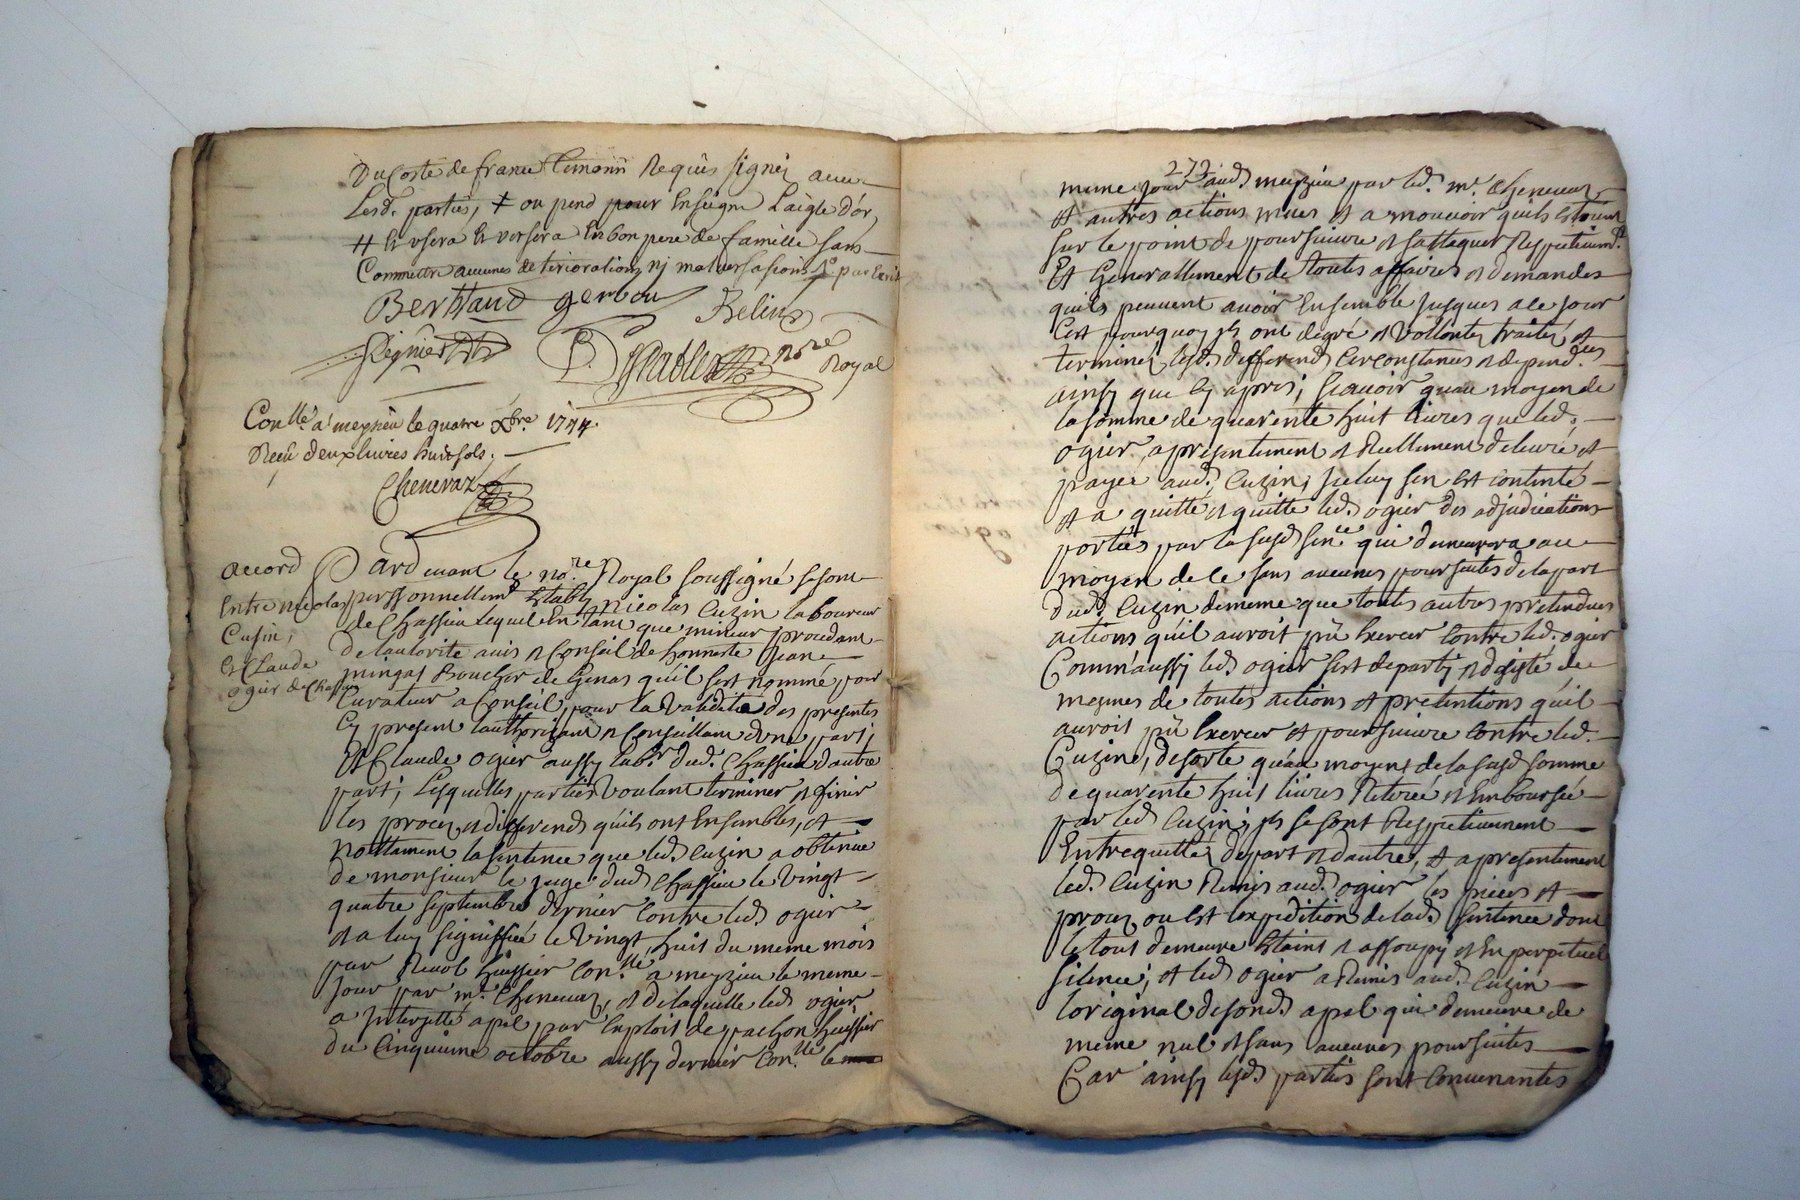 Du Coste de france temoin Requis signés avec
Lesd. parties, ou pend pour Enseigne Laigle d'or,
# Et usera Et versera En bon pere de famille sans
Commettre aucunes deteriorations nj malversasions par
Bertrand gerbou Belin
Regnier No.re Royal
Con.llé a meyzieu le quatre Xbre. 1744.
Reçu deux livres huit sols.
Chenevaz
accord
Entre nicolas
Cuzin,
Et Claude
ogier de Chassieu
Pardevant le no.re Royal soussigné se sont
personnellem.t Etablis nicolas Cuzin laboureur
de Chassieu lequel En tant que mineur procedant
de lautorité avis et Conseil de honneste Jean
mingat Boucher de Genas qu'il s'est nommé pour
Curateur a Conseil pour la validitée des presentes
Cy present lauthorisant et Conseillant d'une part,
Et Claude ogier aussy lab.r dud. Chassieu d'autre
part, Lesquelles parties voulant terminer et finir
les procez et differends qu'ils ont Ensembles, et
nottament la sentence que led. Cuzin a obtenue
de monsieur le juge dud. Chassieu le vingt
quatre septembre dernier Contre led. ogier
et a luy signiffiée le vingt huit du meme mois
par Huissier Con.llé a meyzieu le meme
jour par m.r Chenevaz, et de laquelle led. ogier
a Interjetté apel par Exploit de pachon huissier
du Cinquieme octobre aussy dernier Con.llé le
272
meme jour aud. meyzieu par led. m.r Chenevaz,
et autres actions mues et a mouvoir qu'ils Etoient
sur le point de poursuivre et sattaquer Respectivem.t
Et Generallement de toutes affaires et demandes
qu'ils peuvent avoir Ensemble jusques a ce jour
C'est pourquoy ils ont de gré et vollonté traités et
terminés lesd. differends Circonstances et dependces
ainsy que Cy apres, sçavoir qu'au moyen de
la somme de quarente huit livres que led.
ogier a presentement et Reellement delivré et
payer aud. Cuzin, jceluy s'en Est contenté
et a quitté et quitte led. ogier des adjudications
portées par la susd. sen.ce qui demeurera au
moyen de ce sans aucunes poursuites de la part
dud. Cuzin de meme que toutes autres pretendues
actions qu'il auroit pû Exercer Contre led. ogier
Comm'aussy led. ogier s'est departy et desisté de
mesmes de toutes actions et pretentions qu'il
auroit pû Exercer et poursuivre Contre led.
Cuzin, desorte qu'au moyent de la susd. somme
de quarente huit livres Retirée et Emboursée
par led. Cuzin, ils se sont Respectivement
Entrequittés depart et d'autre, et a presentement
led. Cuzin Remis aud. ogier les pieces et
procez ou Est l'expedition de lad. sentence dont
le tout demeure Etaint et assoupy et En perpetuel
silence, et led. ogier a Remis aud. Cuzin
loriginal de sond. apel qui demeure de
méme nul et sans aucunes poursuites
Car ainsy lesd. parties sont Convenantes